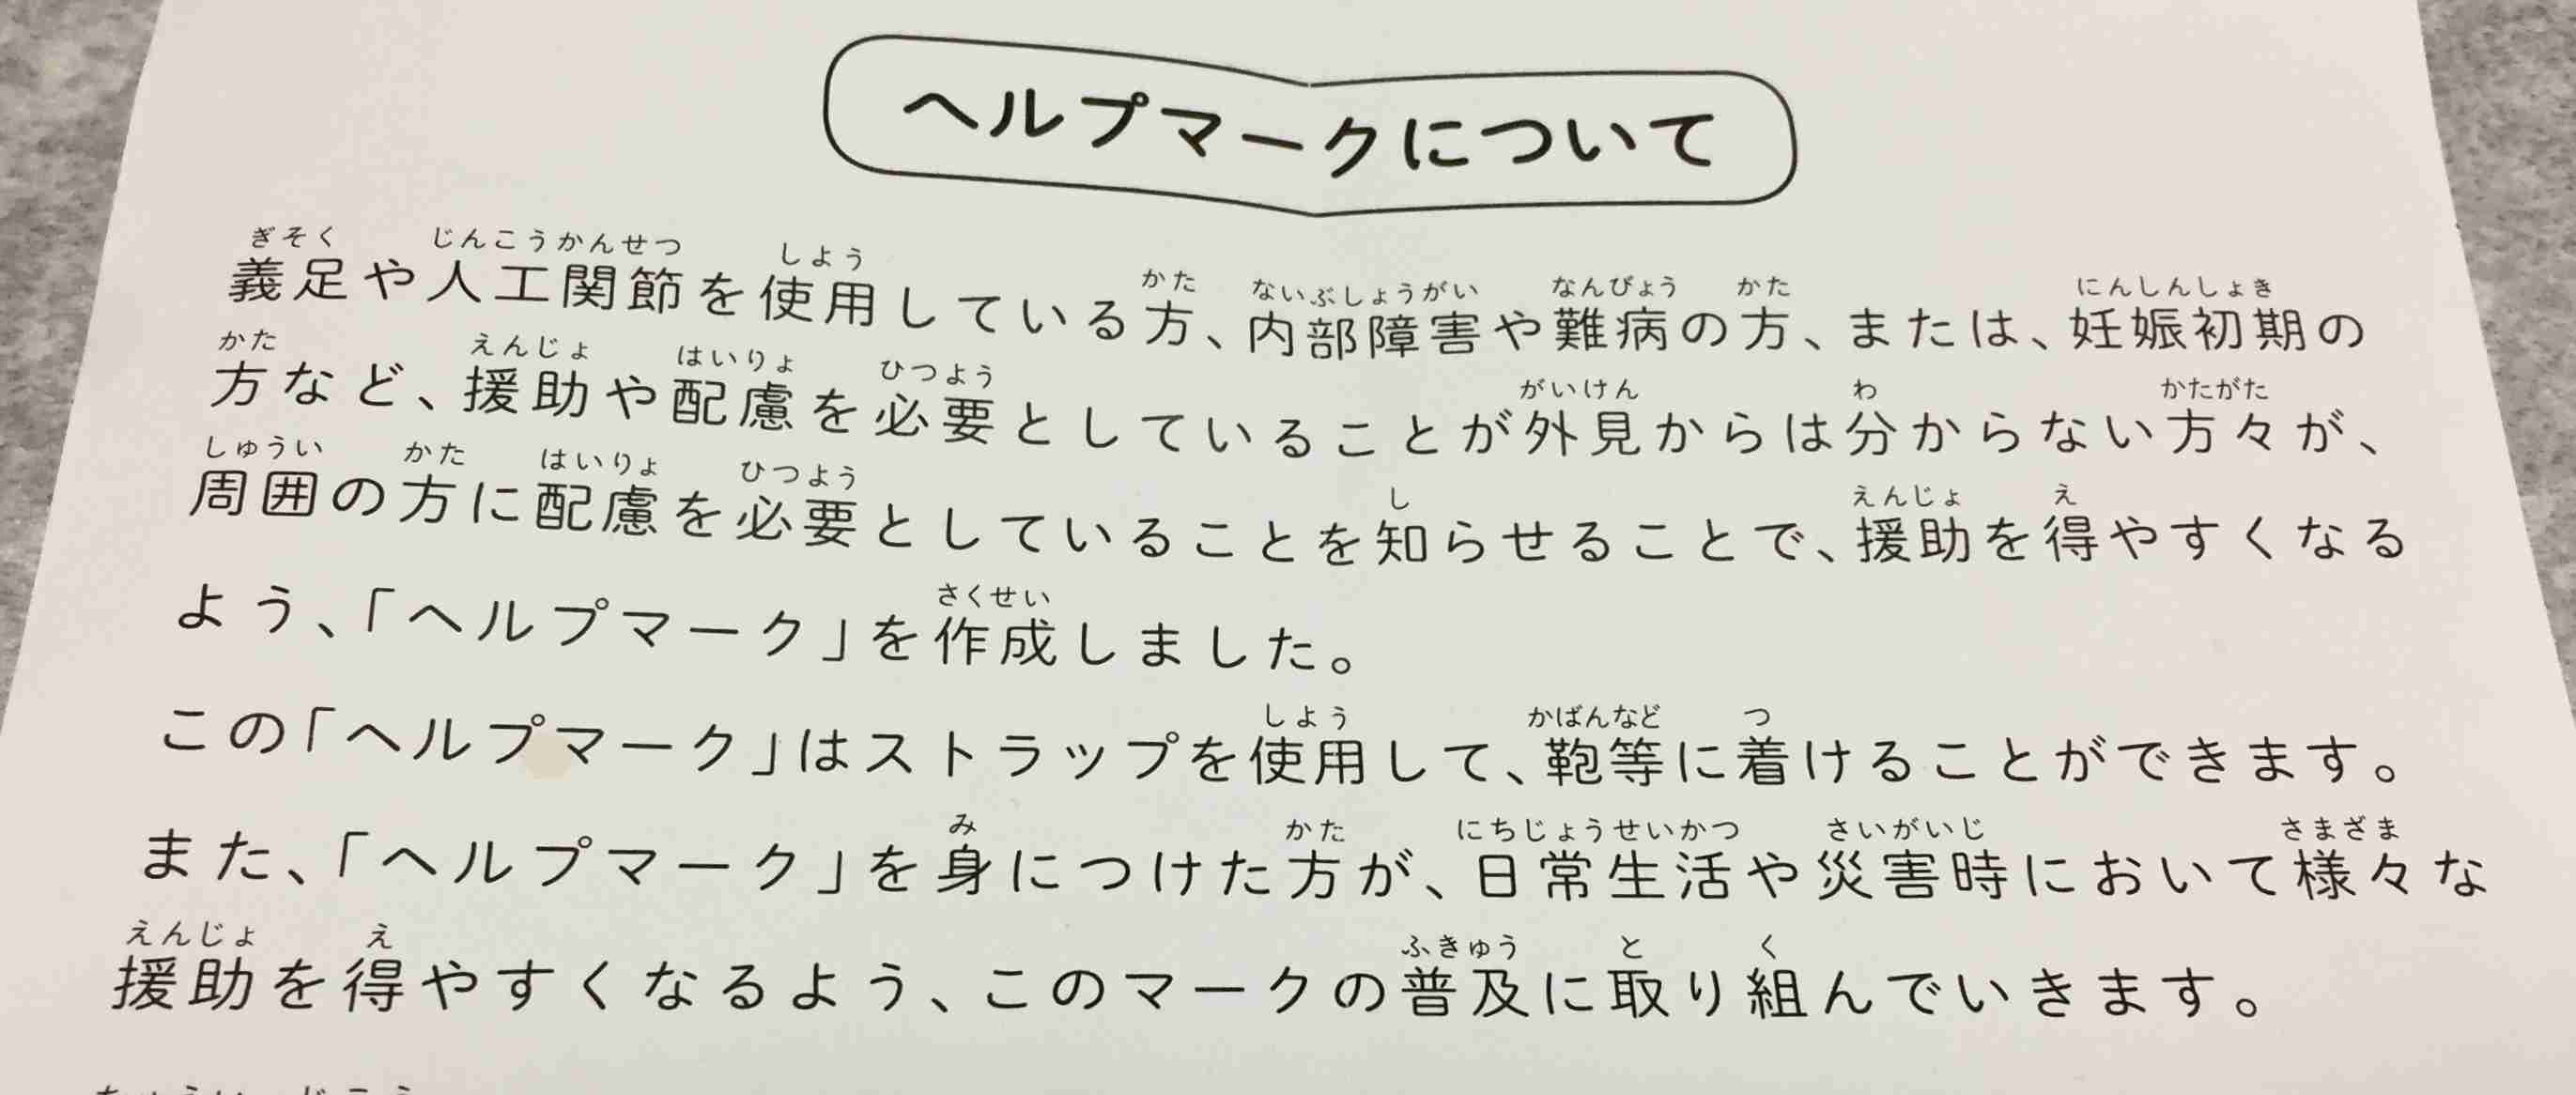 ヘルプマークについて
ぎそく じんこうかんせつ しよう かた ないぶしょうがい なんびょう かた にんしんしょき
義足や人工関節を使用している方、内部障害や難病の方、または、妊娠初期の
かた えんじょ はいりょ ひつよう がいけん わ かたがた
方など、援助や配慮を必要としていることが外見からは分からない方々が、
しゅうい かた はいりょ ひつよう し えんじょ え
周囲の方に配慮を必要としていることを知らせることで、援助を得やすくなる
さくせい
よう、「ヘルプマーク」を作成しました。
しよう かばんなど つ
この「ヘルプマーク」はストラップを使用して、鞄等に着けることができます。
み かた にちじょうせいかつ さいがいじ さまざま
また、「ヘルプマーク」を身につけた方が、日常生活や災害時において様々な
えんじょ え ふきゅう と く
援助を得やすくなるよう、このマークの普及に取り組んでいきます。